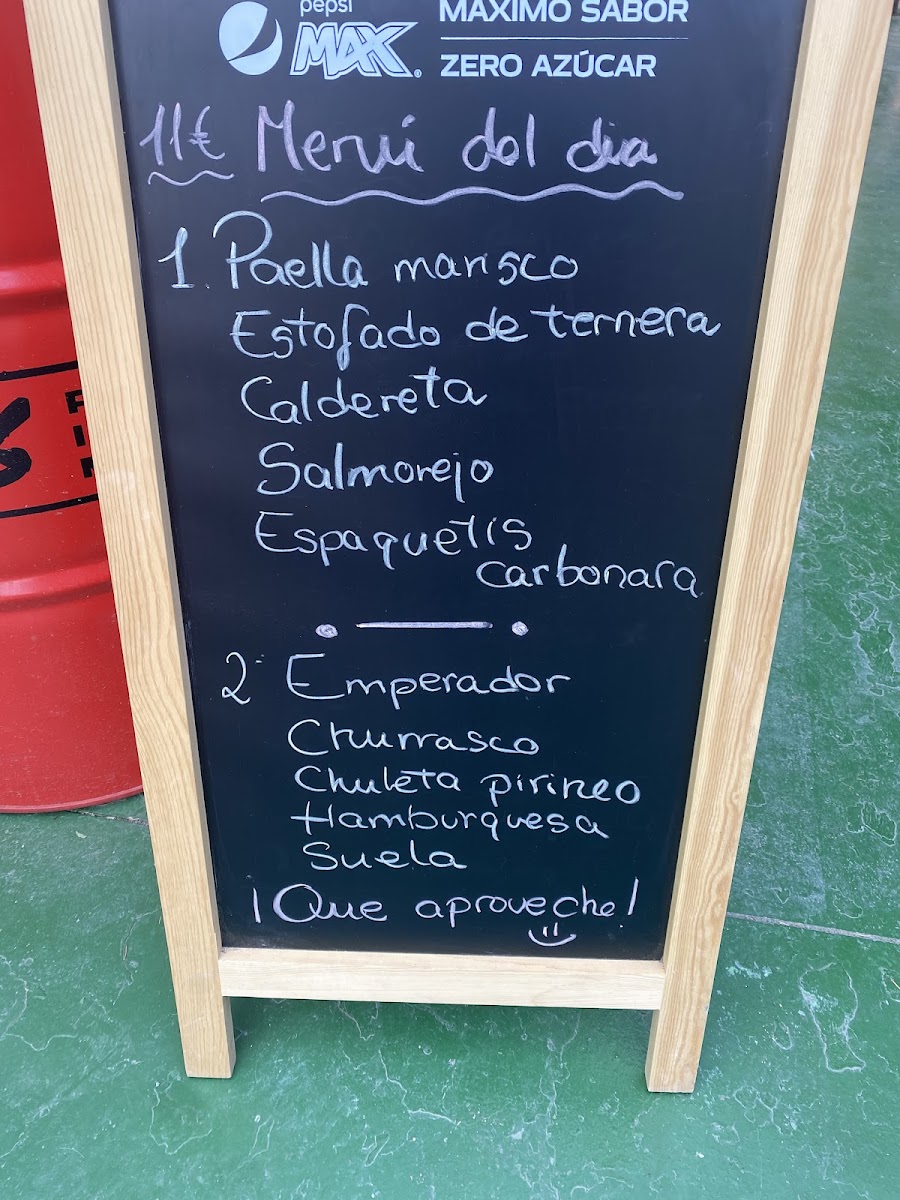 pepsi
MAX
MÁXIMO SABOR
ZERO AZÚCAR
11€ Menú del dia
1. Paella marisco
Estofado de ternera
Caldereta
Salmorejo
Espaquetis
carbonara
2 Emperador
Churrasco
Chuleta pirineo
Hamburquesa
Suela
¡Que aproveche!